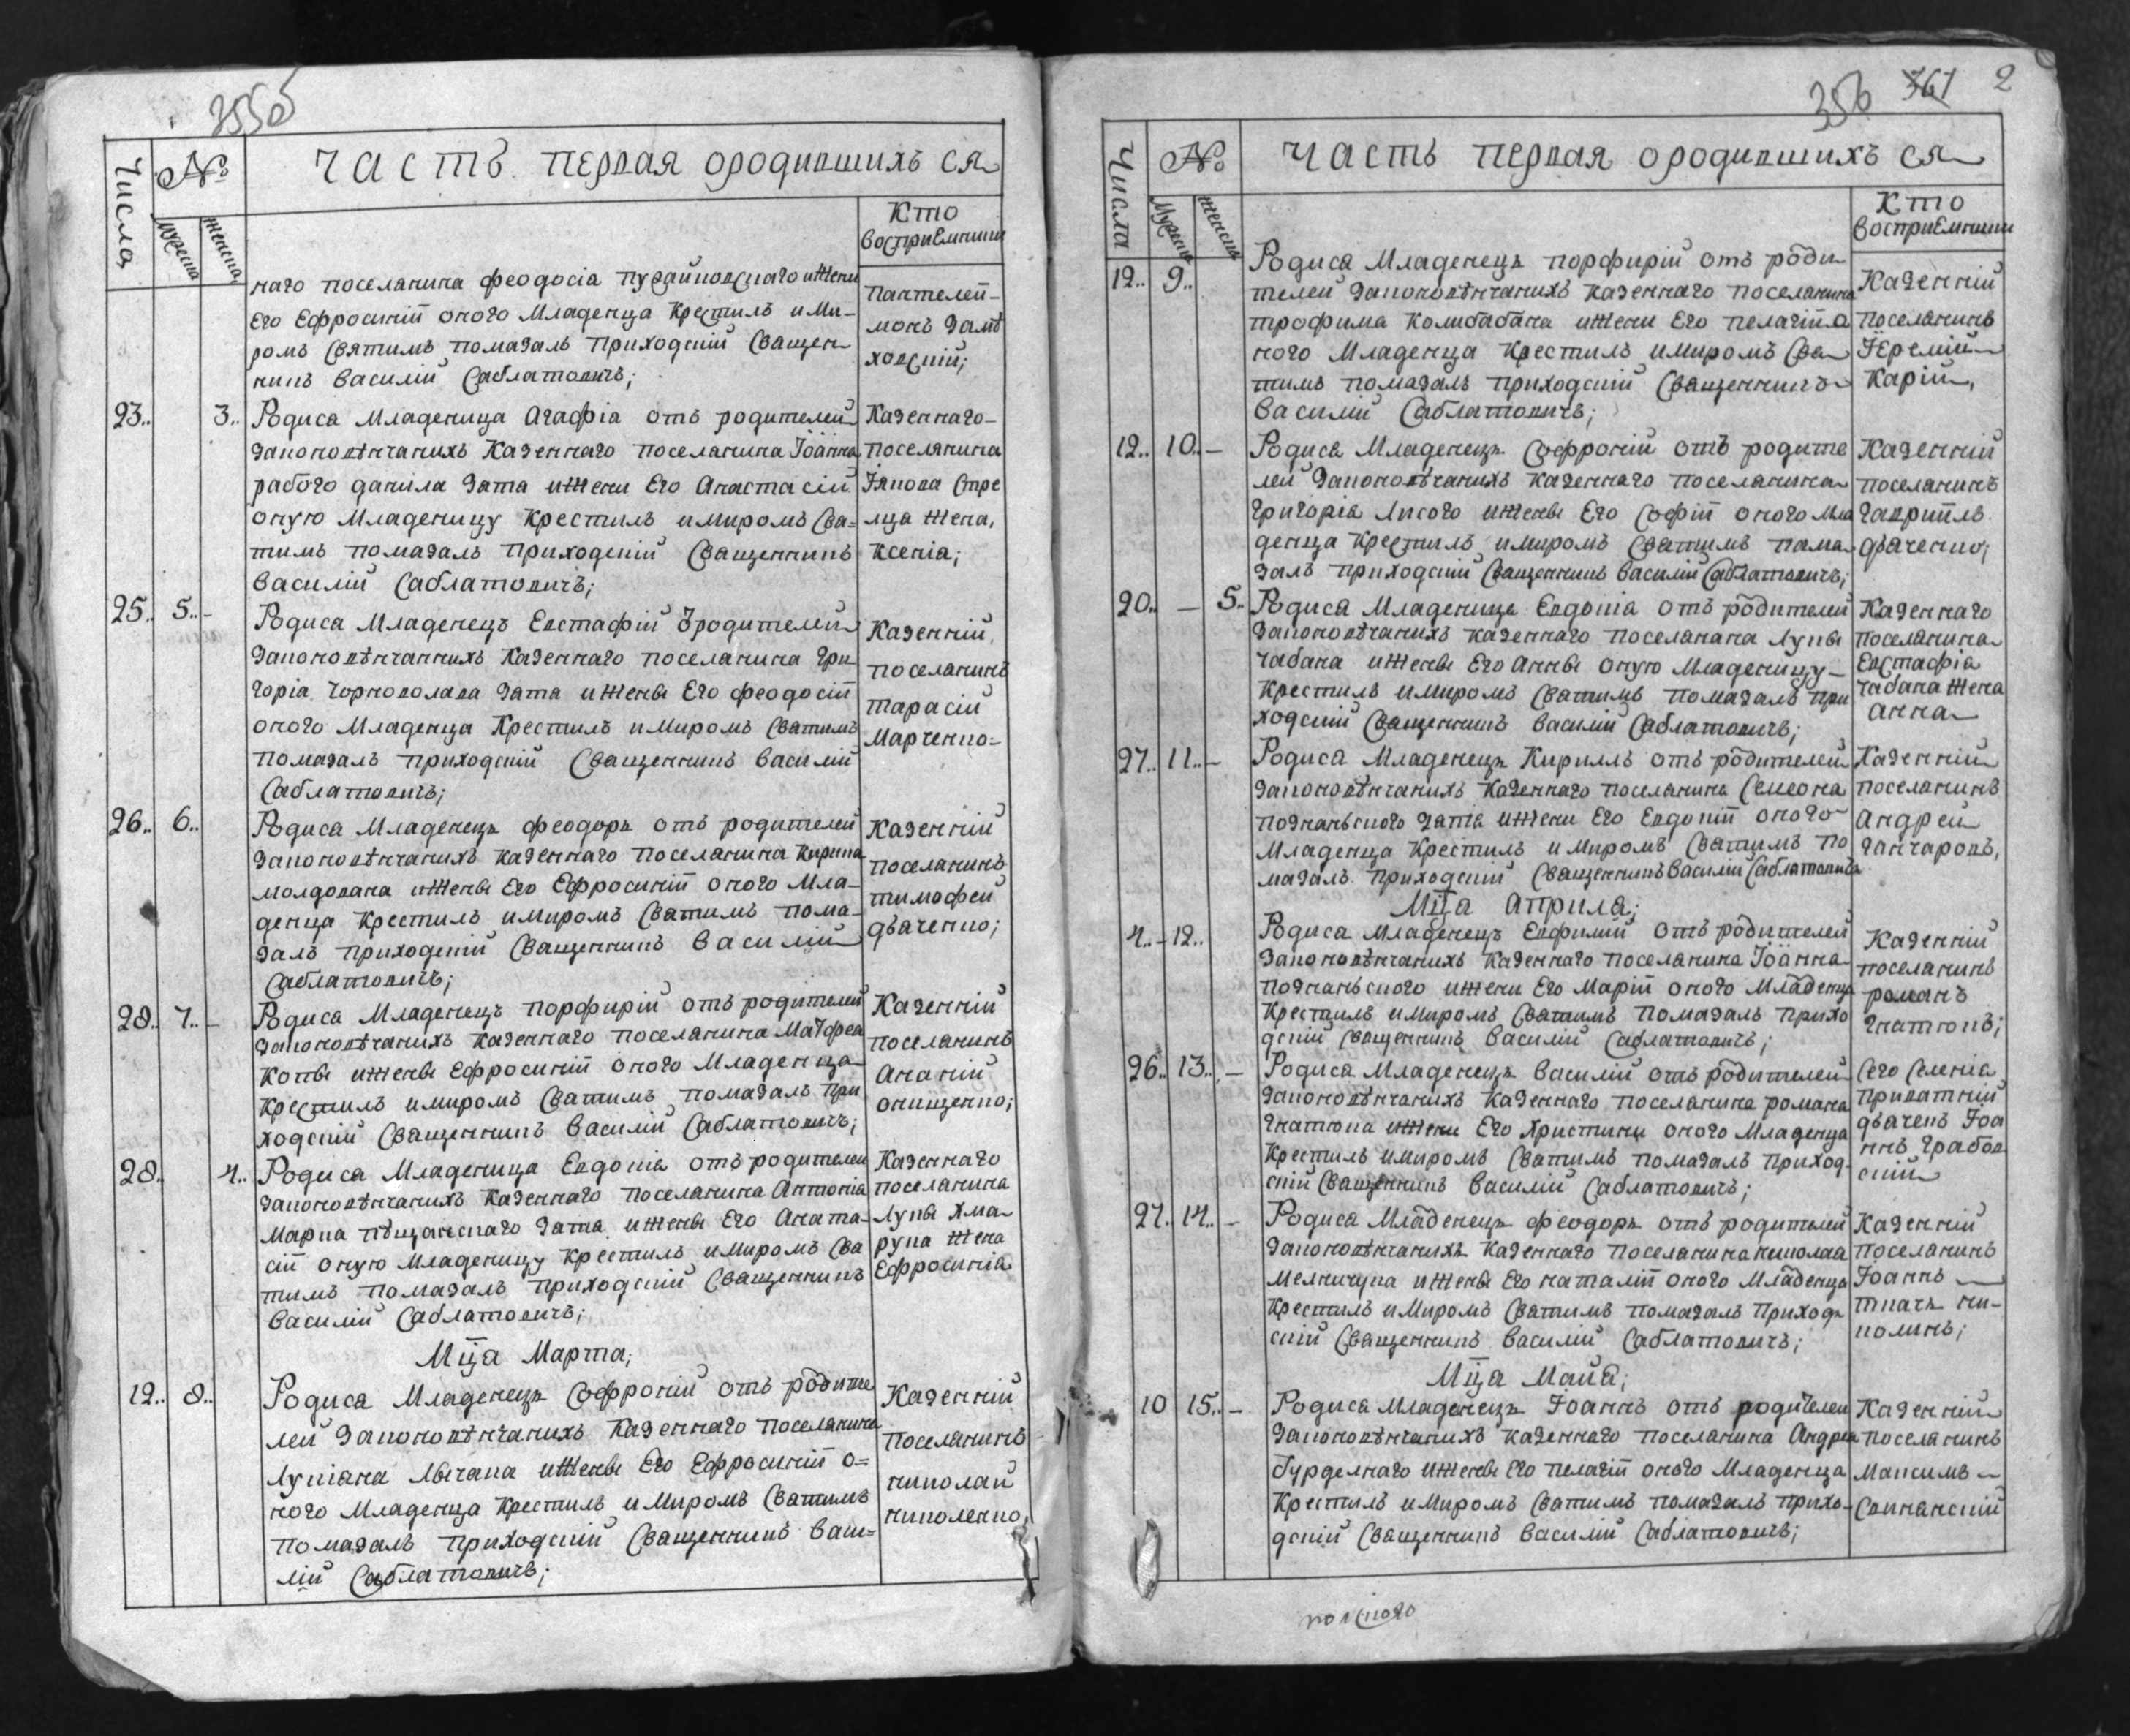 355об
Числа
№
часть первая ородившихъ ся
Мужеска
Женска
Кто
воспрiемники
наго поселянина феодосiа пугайновскаго ижени
Его Ефросинiи оного Младенца Крестилъ и Ми-
ромъ Святимъ помазалъ приходскiй Священ-
никъ василiй Саблатовичъ;
Пантелей-
монъ Замѣ
ховскiй;
23.. 3.. Родися Младеница Агафiа отъ родителей
законовѣнчанихъ Казеннаго поселянина Iоанна
рабого данiила зятя ижени Его Анастасiи
оную Младеницу Крестилъ имиромъ Свя-
тимъ помазалъ приходскiй Священникъ
василiй Саблатовичъ;
Казеннаго-
поселянина
Iякова Стре
лца жена,
Ксенiа;
25. 5.. - Родися Младенецъ Евстафiй ѿродителей
законовѣнчаннихъ Казеннаго поселянина гри
горiа чорноволава зятя иженѣ Его феодосiи
оного Младенца Крестилъ имиромъ Святимъ
помазалъ приходскiй Священникъ василiй
Саблатовичъ;
Казеннiй
поселянинъ
тарасiй
Марченко=
26.. 6.. Родися Младенецъ феодоръ отъ родителей
законовѣнчанихъ казеннаго поселянина Кирика
молдована иженѣ Его Ефросинiи оного Мла-
денца Крестилъ имиромъ Святимъ пома-
залъ приходскiй Священникъ василiй
Саблатовичъ;
Казеннiй
поселянинъ
тимофей
дяченко;
28.. 7.. - Родися Младенецъ порфирiй отъ родителей
законовѣчанихъ казеннаго поселянина Матфея
Копѣ иженѣ Ефросинiи оного Младенца
Крестилъ имиромъ Святимъ помазалъ при
ходскiй Священникъ василiй Саблатовичъ;
Казеннiй
поселянинъ
Ананiй
онищенко;
28. 4.. Родися Младеница Евдокiа отъ родителей
законовѣнчанихъ Казеннаго поселянина Антонiа
Марка пѣщанскаго зятя иженѣ Его Аната-
сiи оную Младеницу Крестилъ имиромъ Свя
тимъ помазалъ приходскiй Священникъ
василiй Саблатовичъ;
Казеннаго
поселянина
лукѣ хма-
рука жена
Ефросинiа
Мца Марта;
12.. 8.. Родися Младенецъ Софронiй отъ родите
лей законовѣнчанихъ Казеннаго поселянина
лукiана лѣчака иженѣ Его Ефросинiи о=
ного Младенца Крестилъ имиромъ Святимъ
помазалъ приходскiй Священникъ васи=
лiй Саблатовичъ;
Казеннiй
поселянинъ
николай
николенко,
356 361 2
Числа
№
часть первая ородившихъ ся
Мужеска
Женска
Кто
воспрiемники
12.. 9.. Родися Младенецъ порфирiй отъ роди
телей законовѣнчанихъ казеннаго поселянина
трофима Колибабана ижени Его пелагiи о
ного Младенца Крестилъ имиромъ Свя
тимъ помазалъ приходскiй Священникъ
василiй Саблатовичъ;
Казеннiй
поселянинъ
Iеремiй
Карiй,
12.. 10.. - Родися Младенецъ Софронiй отъ родите
лей законовѣчанихъ казеннаго поселянина
григорiа лисого иженѣ Его Софiи оного мла
денца Крестилъ имиромъ Святимъ пома
залъ приходскiй Священникъ василiй Саблатовичъ;
Казеннiй
поселянинъ
гаврiилъ
дяченко;
20.. - 5.. Родися Младенице Евдокiа отъ родителей
законовѣчанихъ казеннаго поселянана лукѣ
чабана иженѣ Его аннѣ оную Младеницу-
Крестилъ имиромъ Святимъ помазалъ при
ходскiй Священникъ василiй Саблатовичъ;
Казеннаго
поселянина
Евстафiа
чабана жена
анна
27.. 11.. - Родися Младенецъ Кириллъ отъ родителей
законовѣнчанихъ казеннаго поселянина Семеона
познанского зятiа ижени Его Евдокiи оного
Младенца Крестилъ имиромъ Святимъ по
мазалъ приходскiй Священникъ василiй Саблатовичъ
Казеннiй
поселянинъ
андрей
ганчаровъ,
Мца Априла;
4.. - 12.. Родися Младенецъ Евфимiй отъ родителей
законовѣнчанихъ Казеннаго поселянина Iоанна
познанского ижени Его Марiи оного Младенца
Крестилъ имиромъ Святимъ помазалъ прихо
дскiй Священникъ василiй Саблатовичъ;
Казеннiй
поселянинъ
романъ
гнатюкъ;
26.. 13.. - Родися Младенецъ василiй отъ родителей
законовѣнчанихъ казеннаго поселянина романа
гнатюка ижени Его христини оного Младенца
Крестилъ имиромъ Святимъ помазалъ приход-
скiй Священникъ василiй Саблатовичъ;
Сего Селенiа
приватнiй
дячекъ Iоа
ннъ грабов
скiй
27. 14.. - Родися Младенецъ феодоръ отъ родителей
законовѣнчанихъ казеннаго поселянина николаа
мелничука иженѣ Его наталiи оного Младенца
Крестилъ имиромъ Святимъ помазалъ приход
скiй Священникъ василiй Саблатовичъ;
Казеннiй
поселянинъ
Iоаннъ
ткачъ ни-
колинъ;
Мца Майа;
10 15.. - Родися Младенецъ Iоаннъ отъ родителей
законовѣнчанихъ казеннаго поселянина Андрея
бурделнаго иженѣ Его пелагiи оного Младенца
Крестилъ имиромъ Святимъ помазалъ прихо-
дскiй Священникъ василiй Саблатовичъ;
Казеннiй
поселянинъ
Максимъ
Свинанскiй